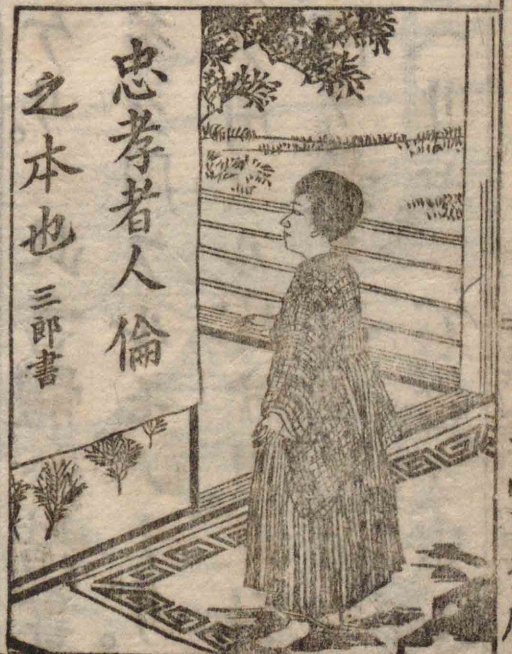 忠孝者人倫
之本也 三郎書